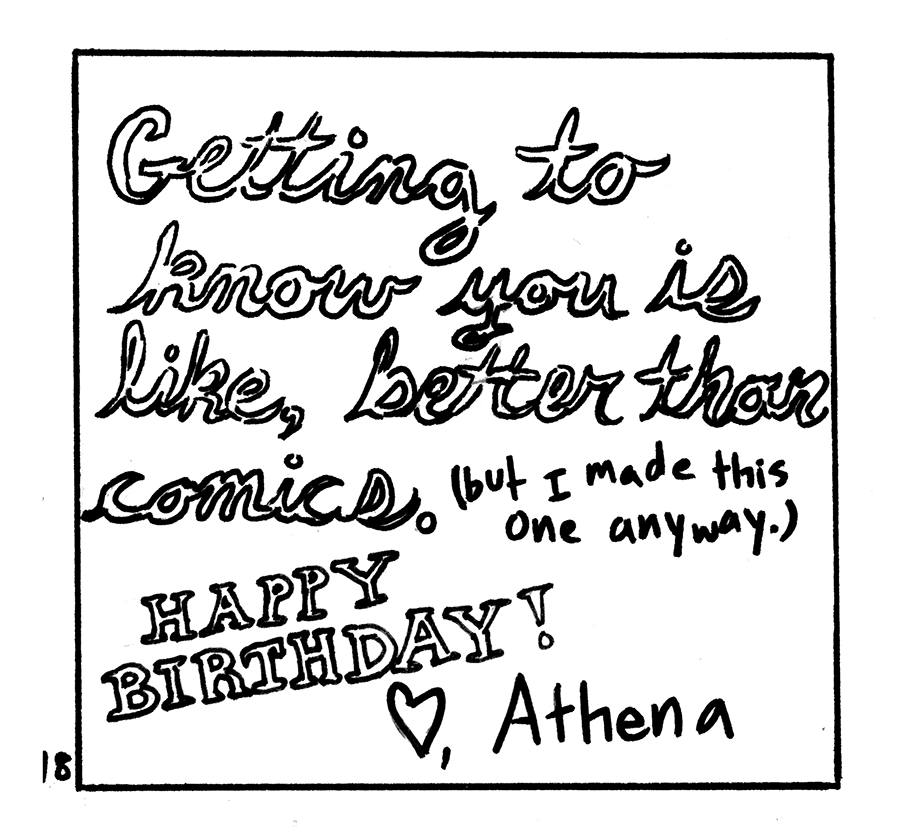 Getting to
know you is
like, better than
comics. (but I made this
one anyway.)
HAPPY
BIRTHDAY!
♡, Athena
18